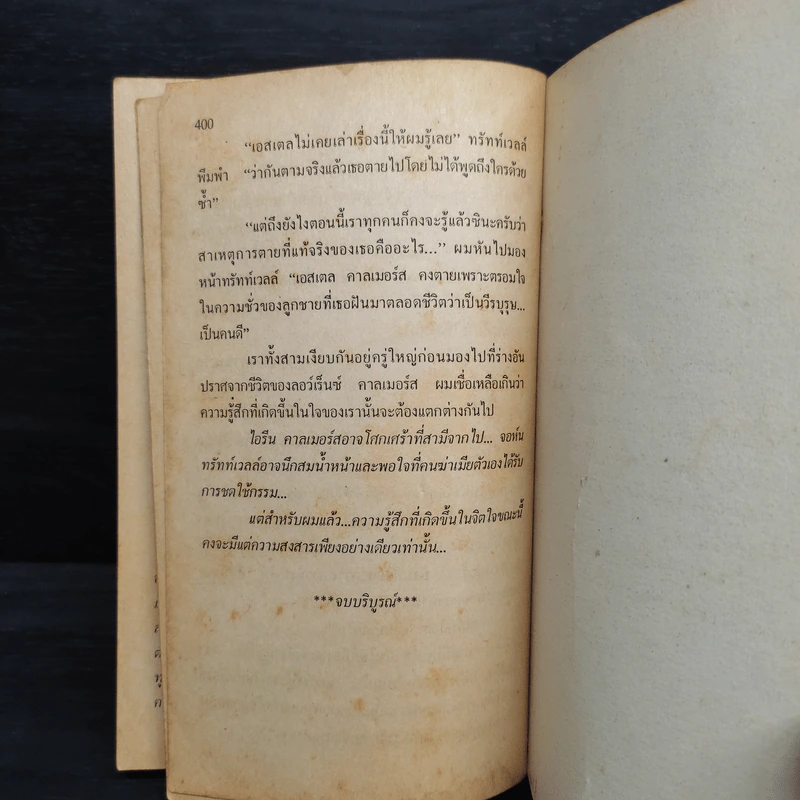 400
“เอสเตลไม่เคยเล่าเรื่องนี้ให้ผมรู้เลย” ทรัทท์เวลล์
พึมพำ “ว่ากันตามจริงแล้วเธอตายไปโดยไม่ได้พูดถึงใครด้วย
ซ้ำ”
“แต่ถึงยังไงตอนนี้เราทุกคนก็คงจะรู้แล้วซินะครับว่า
สาเหตุการตายที่แท้จริงของเธอคืออะไร...” ผมหันไปมอง
หน้าทรัทท์เวลล์ “เอสเตล คาลเมอร์ส คงตายเพราะตรอมใจ
ในความชั่วของลูกชายที่เธอฝันมาตลอดชีวิตว่าเป็นวีรบุรุษ...
เป็นคนดี”
เราทั้งสามเงียบกันอยู่ครู่ใหญ่ก่อนมองไปที่ร่างอัน
ปราศจากชีวิตของลอว์เร็นซ์ คาลเมอร์ส ผมเชื่อเหลือเกินว่า
ความรู้สึกที่เกิดขึ้นในใจของเรานั้นจะต้องแตกต่างกันไป
ไอรีน คาลเมอร์สอาจโศกเศร้าที่สามีจากไป... จอห์น
ทรัทท์เวลล์อาจนึกสมน้ำหน้าและพอใจที่คนฆ่าเมียตัวเองได้รับ
การชดใช้กรรม...
แต่สำหรับผมแล้ว...ความรู้สึกที่เกิดขึ้นในจิตใจขณะนี้
คงจะมีแต่ความสงสารเพียงอย่างเดียวเท่านั้น...
***จบบริบูรณ์***